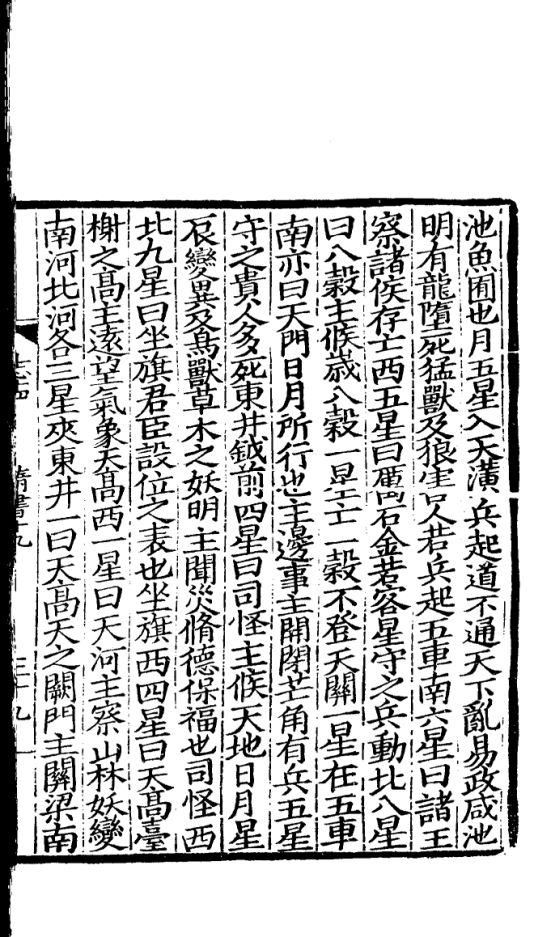 池魚囿也月五星入天潢兵起道不通天下亂易政咸池
明有龍墮死猛獸及狼害人若兵起五車南六星曰諸王
察諸侯存亡西五星曰厲石金若客星守之兵動北八星
曰八穀主候歲八穀一星亡一穀不登天關一星在五車
南亦曰天門日月所行也主邊事主開閉芒角有兵五星
守之貴人多死東井鉞前四星曰司怪主候天地日月星
辰變異及鳥獸草木之妖明主聞災脩德保福也司怪西
北九星曰坐旗君臣設位之表也坐旗西四星曰天髙臺
榭之髙主遠望氣象天髙西一星曰天河主察山林妖變
南河北河各三星夾東井一曰天髙天之闕門主關梁南
志十四 隋書十九 三十九